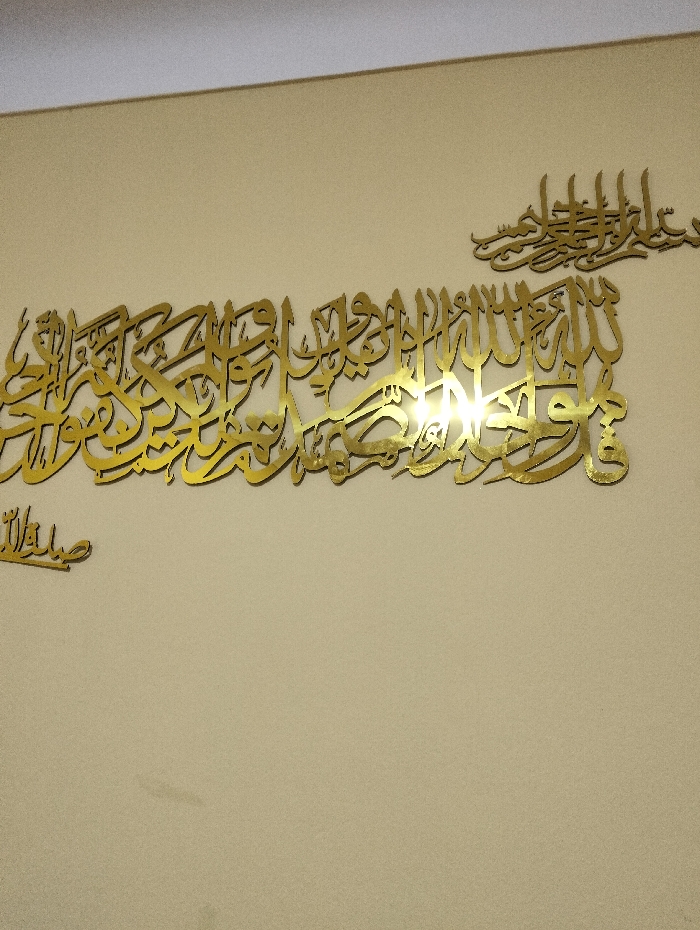 بسم الله الرحمن الرحيم
قل هو الله أحد الله الصمد لم يلد ولم يولد ولم يكن له كفوا أحد
صدق الله